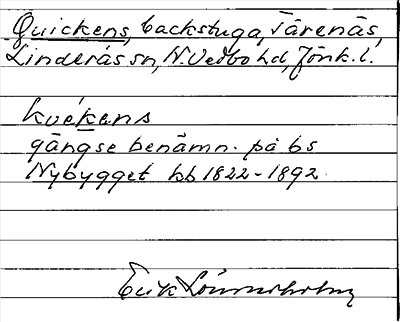 Quickens, backstuga, Tärenäs,
Linderås sn, N. Vedbo hd, Jönk. l.
kvékens
gängse benämn. på bs
Nybygget hb 1822-1892.
Erik